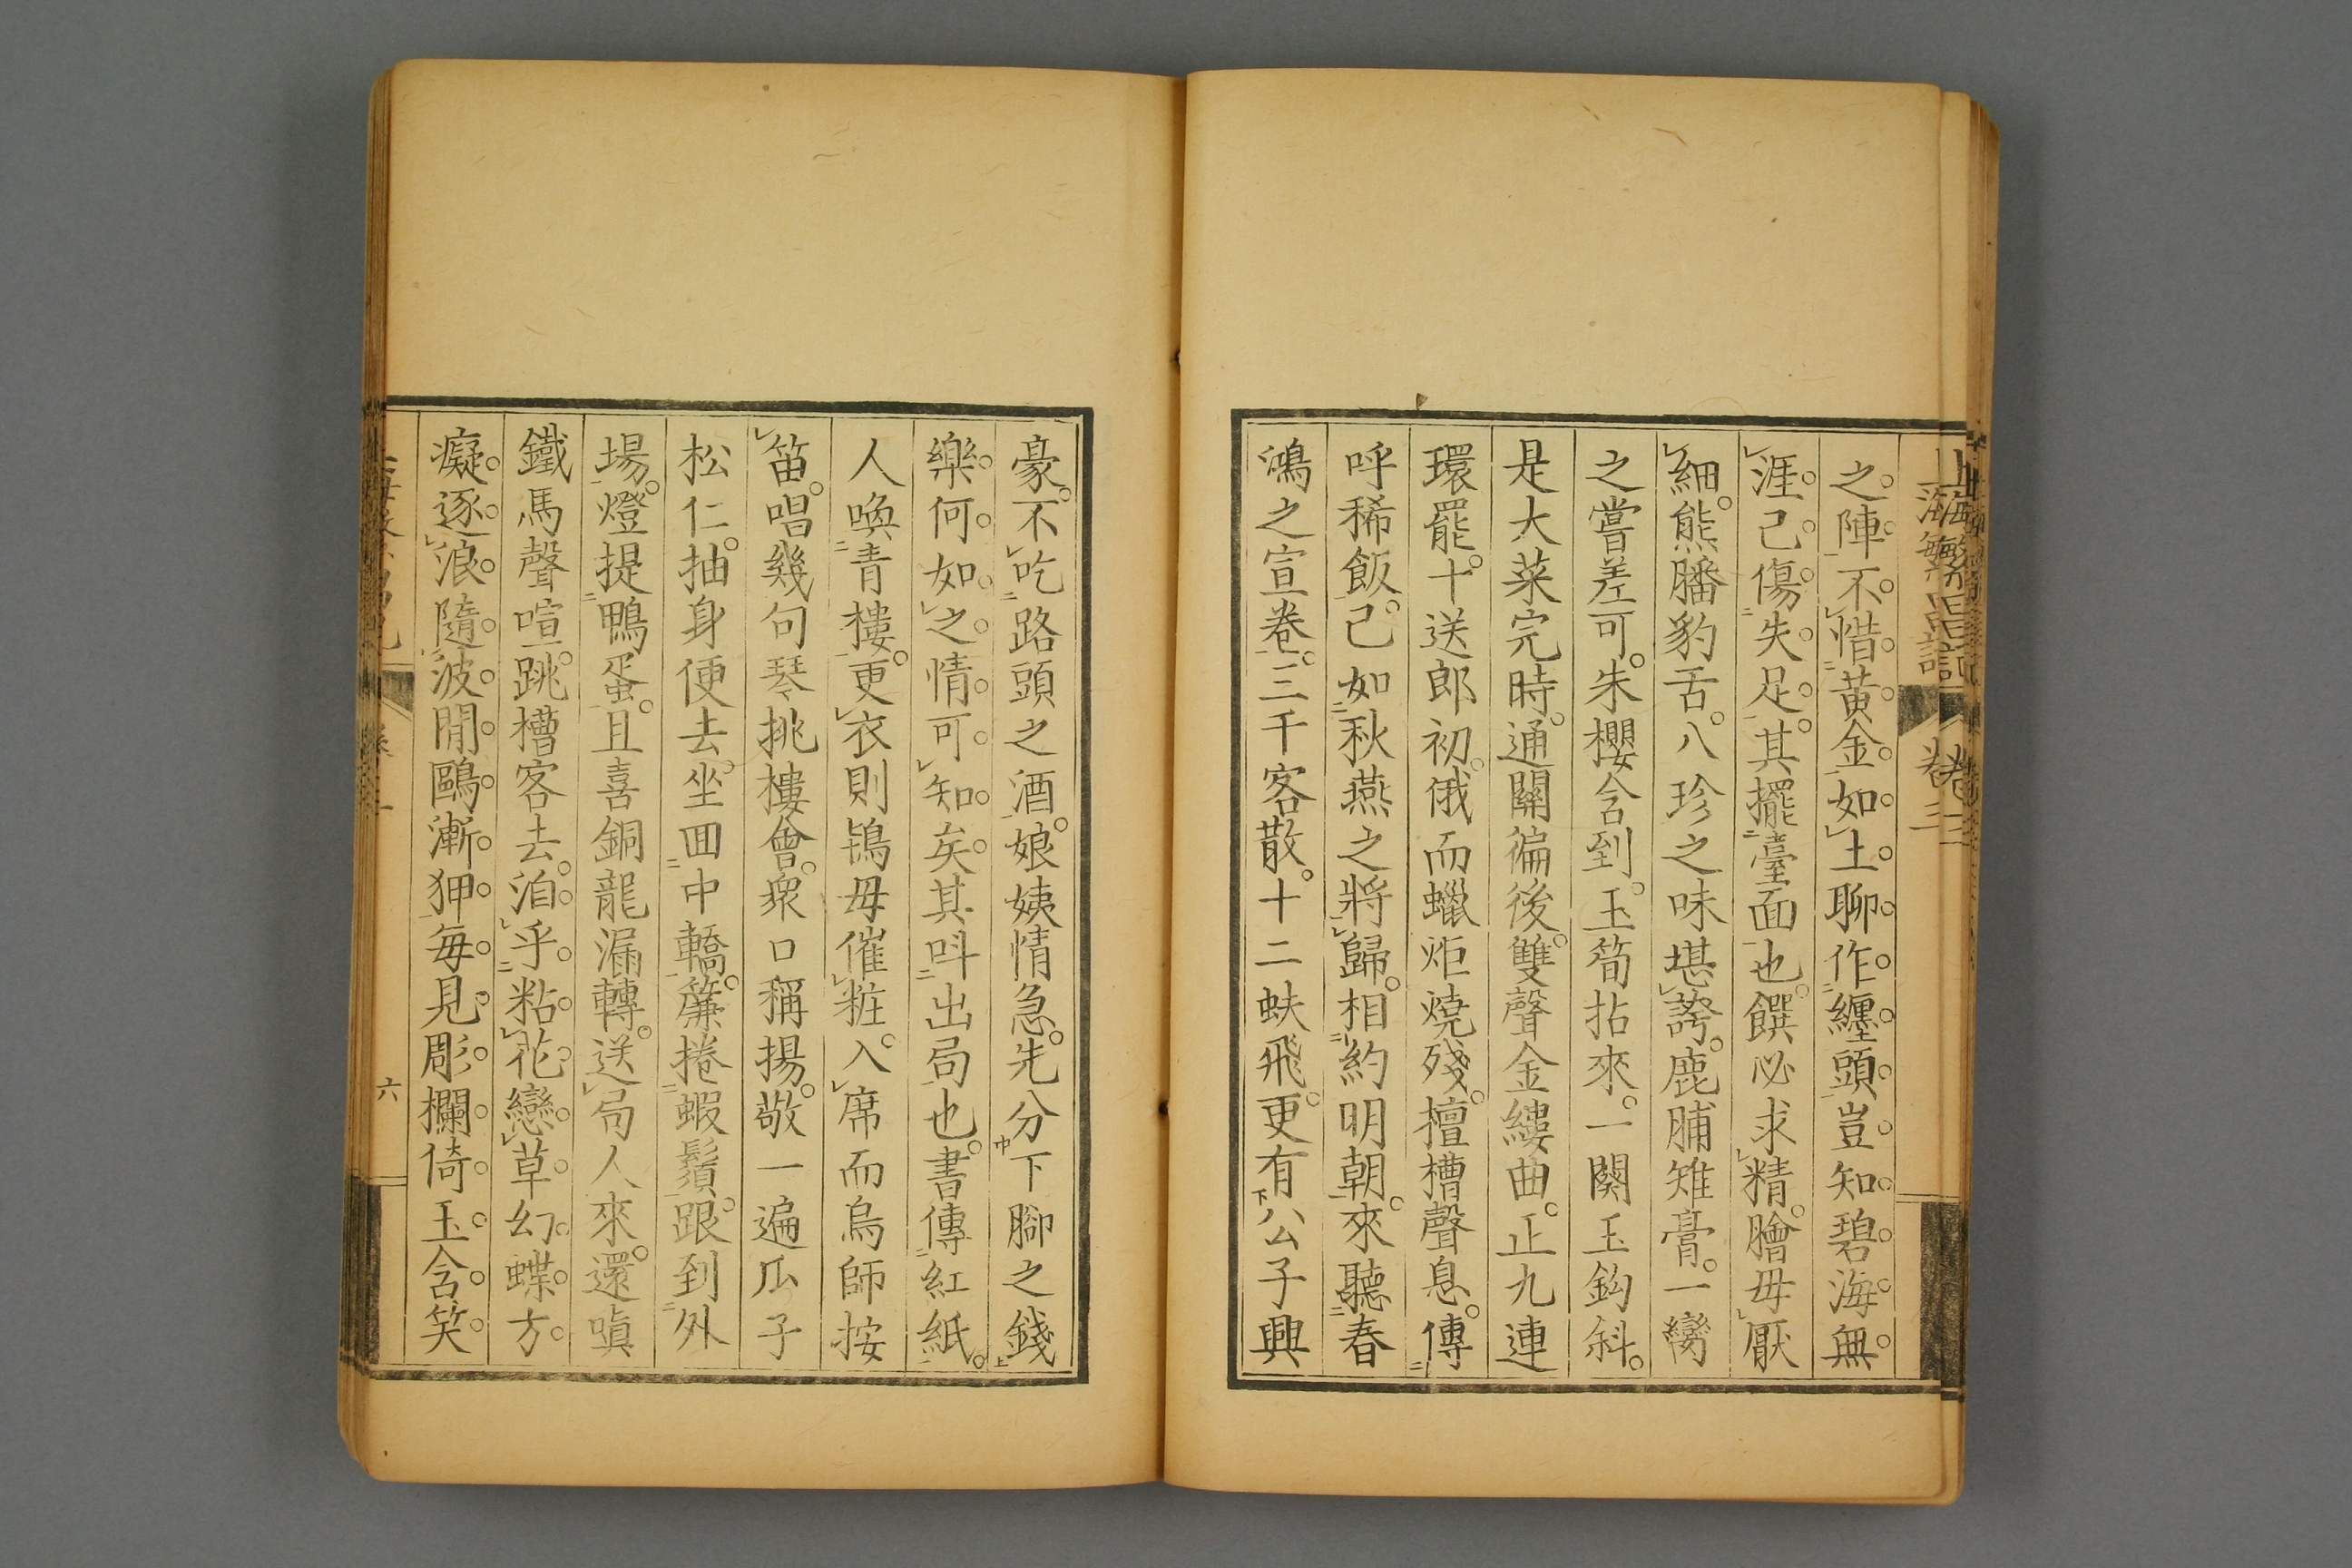 上海繁昌記 卷三
之陣不惜黃金如土聊作纏頭豈知碧海無
涯己傷失足其擺臺面也饌必求精膾毋厭
細熊膰豹舌八珍之味堪誇鹿脯雉膏一臠
之嘗差可朱櫻含到玉筍拈來一闋玉鈎斜
是大菜完時通關徧後雙聲金縷曲正九連
環罷十送郎初俄而蠟炬燒殘檀槽聲息傳
呼稀飯己如秋燕之將歸相約明朝來聽春
鴻之宣卷三千客散十二蚨飛更有公子興
豪不吃路頭之酒娘姨情急先分下腳之錢
樂何如之情可知矣其呌出局也書傳紅紙
人喚青樓更衣則鴇毋催粧入席而烏師按
笛唱幾句琴挑樓會衆口稱揚敬一遍瓜子
松仁抽身便去坐囬中轎簾捲蝦鬚跟到外
場燈提鴨蛋且喜銅龍漏轉送局人來還嗔
鐵馬聲喧跳槽客去洎乎粘花戀草幻蝶方
癡逐浪隨波閒鷗漸狎每見彫欄倚玉含笑
六